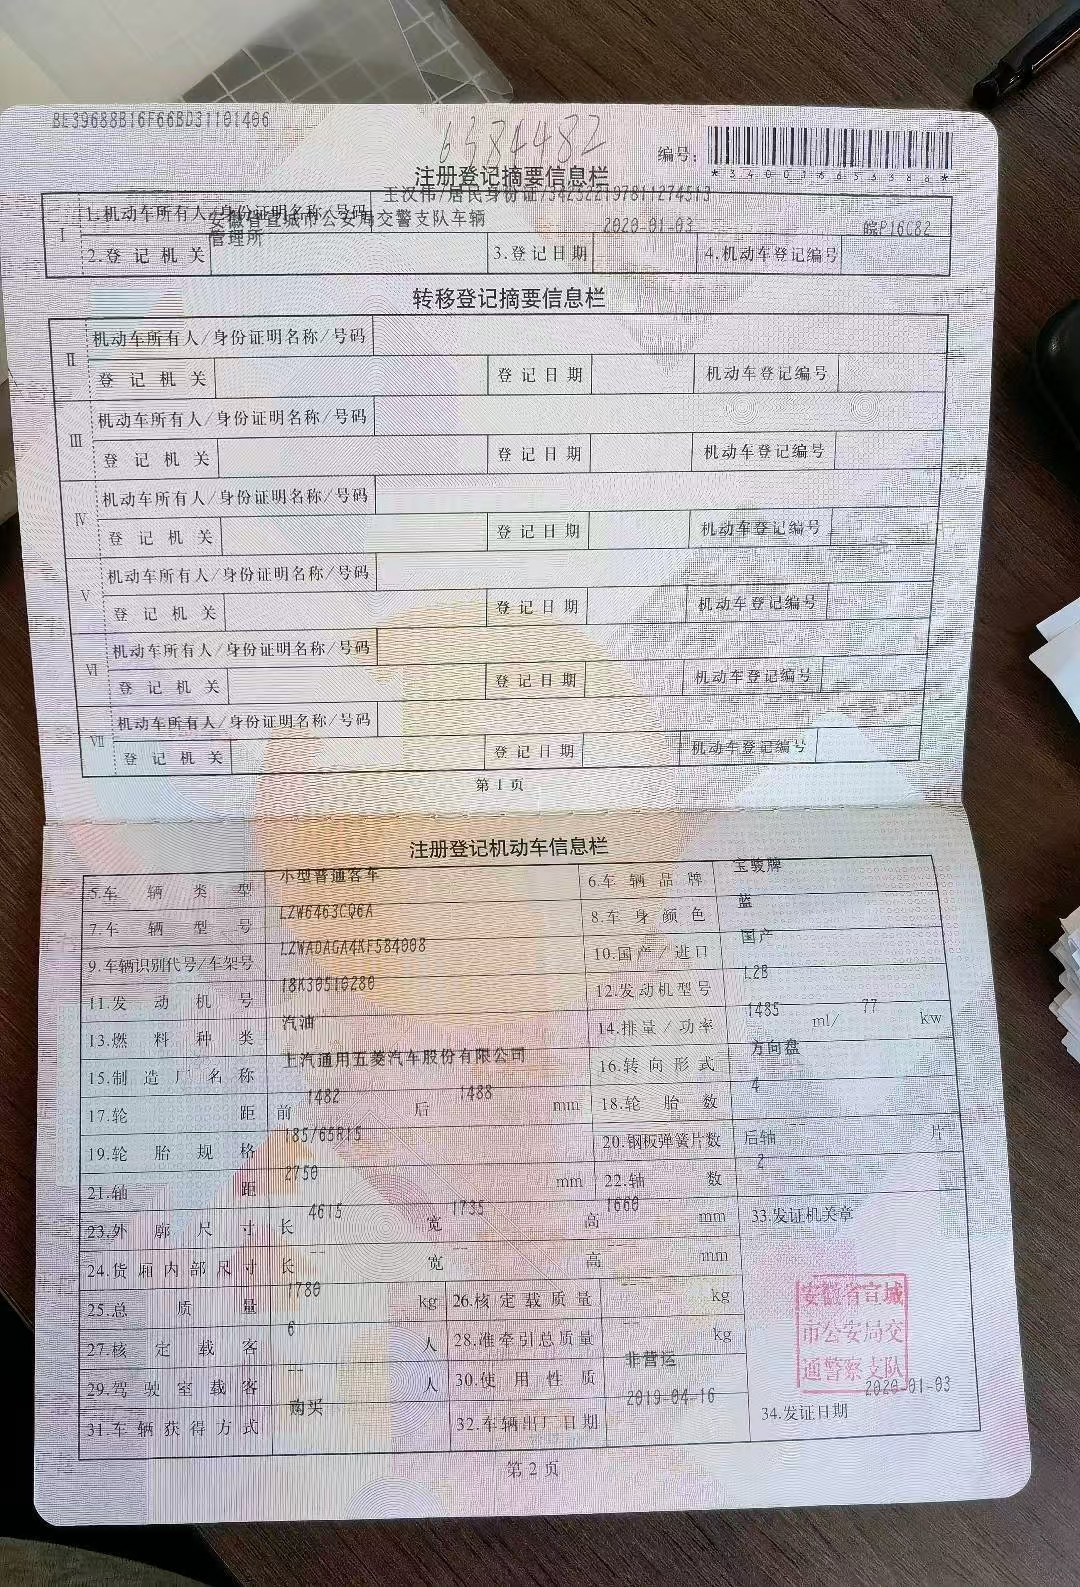 BE39688B16F66BD31101406
6384482
编号:
*340016655388*
注册登记摘要信息栏
I 1.机动车所有人/身份证明名称/号码 王汉伟/居民身份证/342522197811274513
2.登记机关 安徽省宣城市公安局交警支队车辆管理所 3.登记日期 2020-01-03 4.机动车登记编号 皖P16C82
转移登记摘要信息栏
II 机动车所有人/身份证明名称/号码
登记机关 登记日期 机动车登记编号
III 机动车所有人/身份证明名称/号码
登记机关 登记日期 机动车登记编号
IV 机动车所有人/身份证明名称/号码
登记机关 登记日期 机动车登记编号
V 机动车所有人/身份证明名称/号码
登记机关 登记日期 机动车登记编号
VI 机动车所有人/身份证明名称/号码
登记机关 登记日期 机动车登记编号
VII 机动车所有人/身份证明名称/号码
登记机关 登记日期 机动车登记编号
第1页
注册登记机动车信息栏
5.车辆类型 小型普通客车 6.车辆品牌 宝骏牌
7.车辆型号 LZW6463CQ6A 8.车身颜色 蓝
9.车辆识别代号/车架号 LZWADAGA4KF584008 10.国产/进口 国产
11.发动机号 18K30510280 12.发动机型号 L2B
13.燃料种类 汽油 14.排量/功率 1485 ml/ 77 kw
15.制造厂名称 上汽通用五菱汽车股份有限公司 16.转向形式 方向盘
17.轮距 前 1482 后 1488 mm 18.轮胎数 4
19.轮胎规格 185/65R15 20.钢板弹簧片数 后轴 -- 片
21.轴距 2750 mm 22.轴数 2
23.外廓尺寸 长 4615 宽 1735 高 1660 mm 33.发证机关章
24.货厢内部尺寸 长 -- 宽 -- 高 -- mm
25.总质量 1780 kg 26.核定载质量 -- kg
27.核定载客 6 人 28.准牵引总质量 -- kg
29.驾驶室载客 -- 人 30.使用性质 非营运
31.车辆获得方式 购买 32.车辆出厂日期 2019-04-16
安徽省宣城
市公安局交
通警察支队
34.发证日期 2020-01-03
第2页